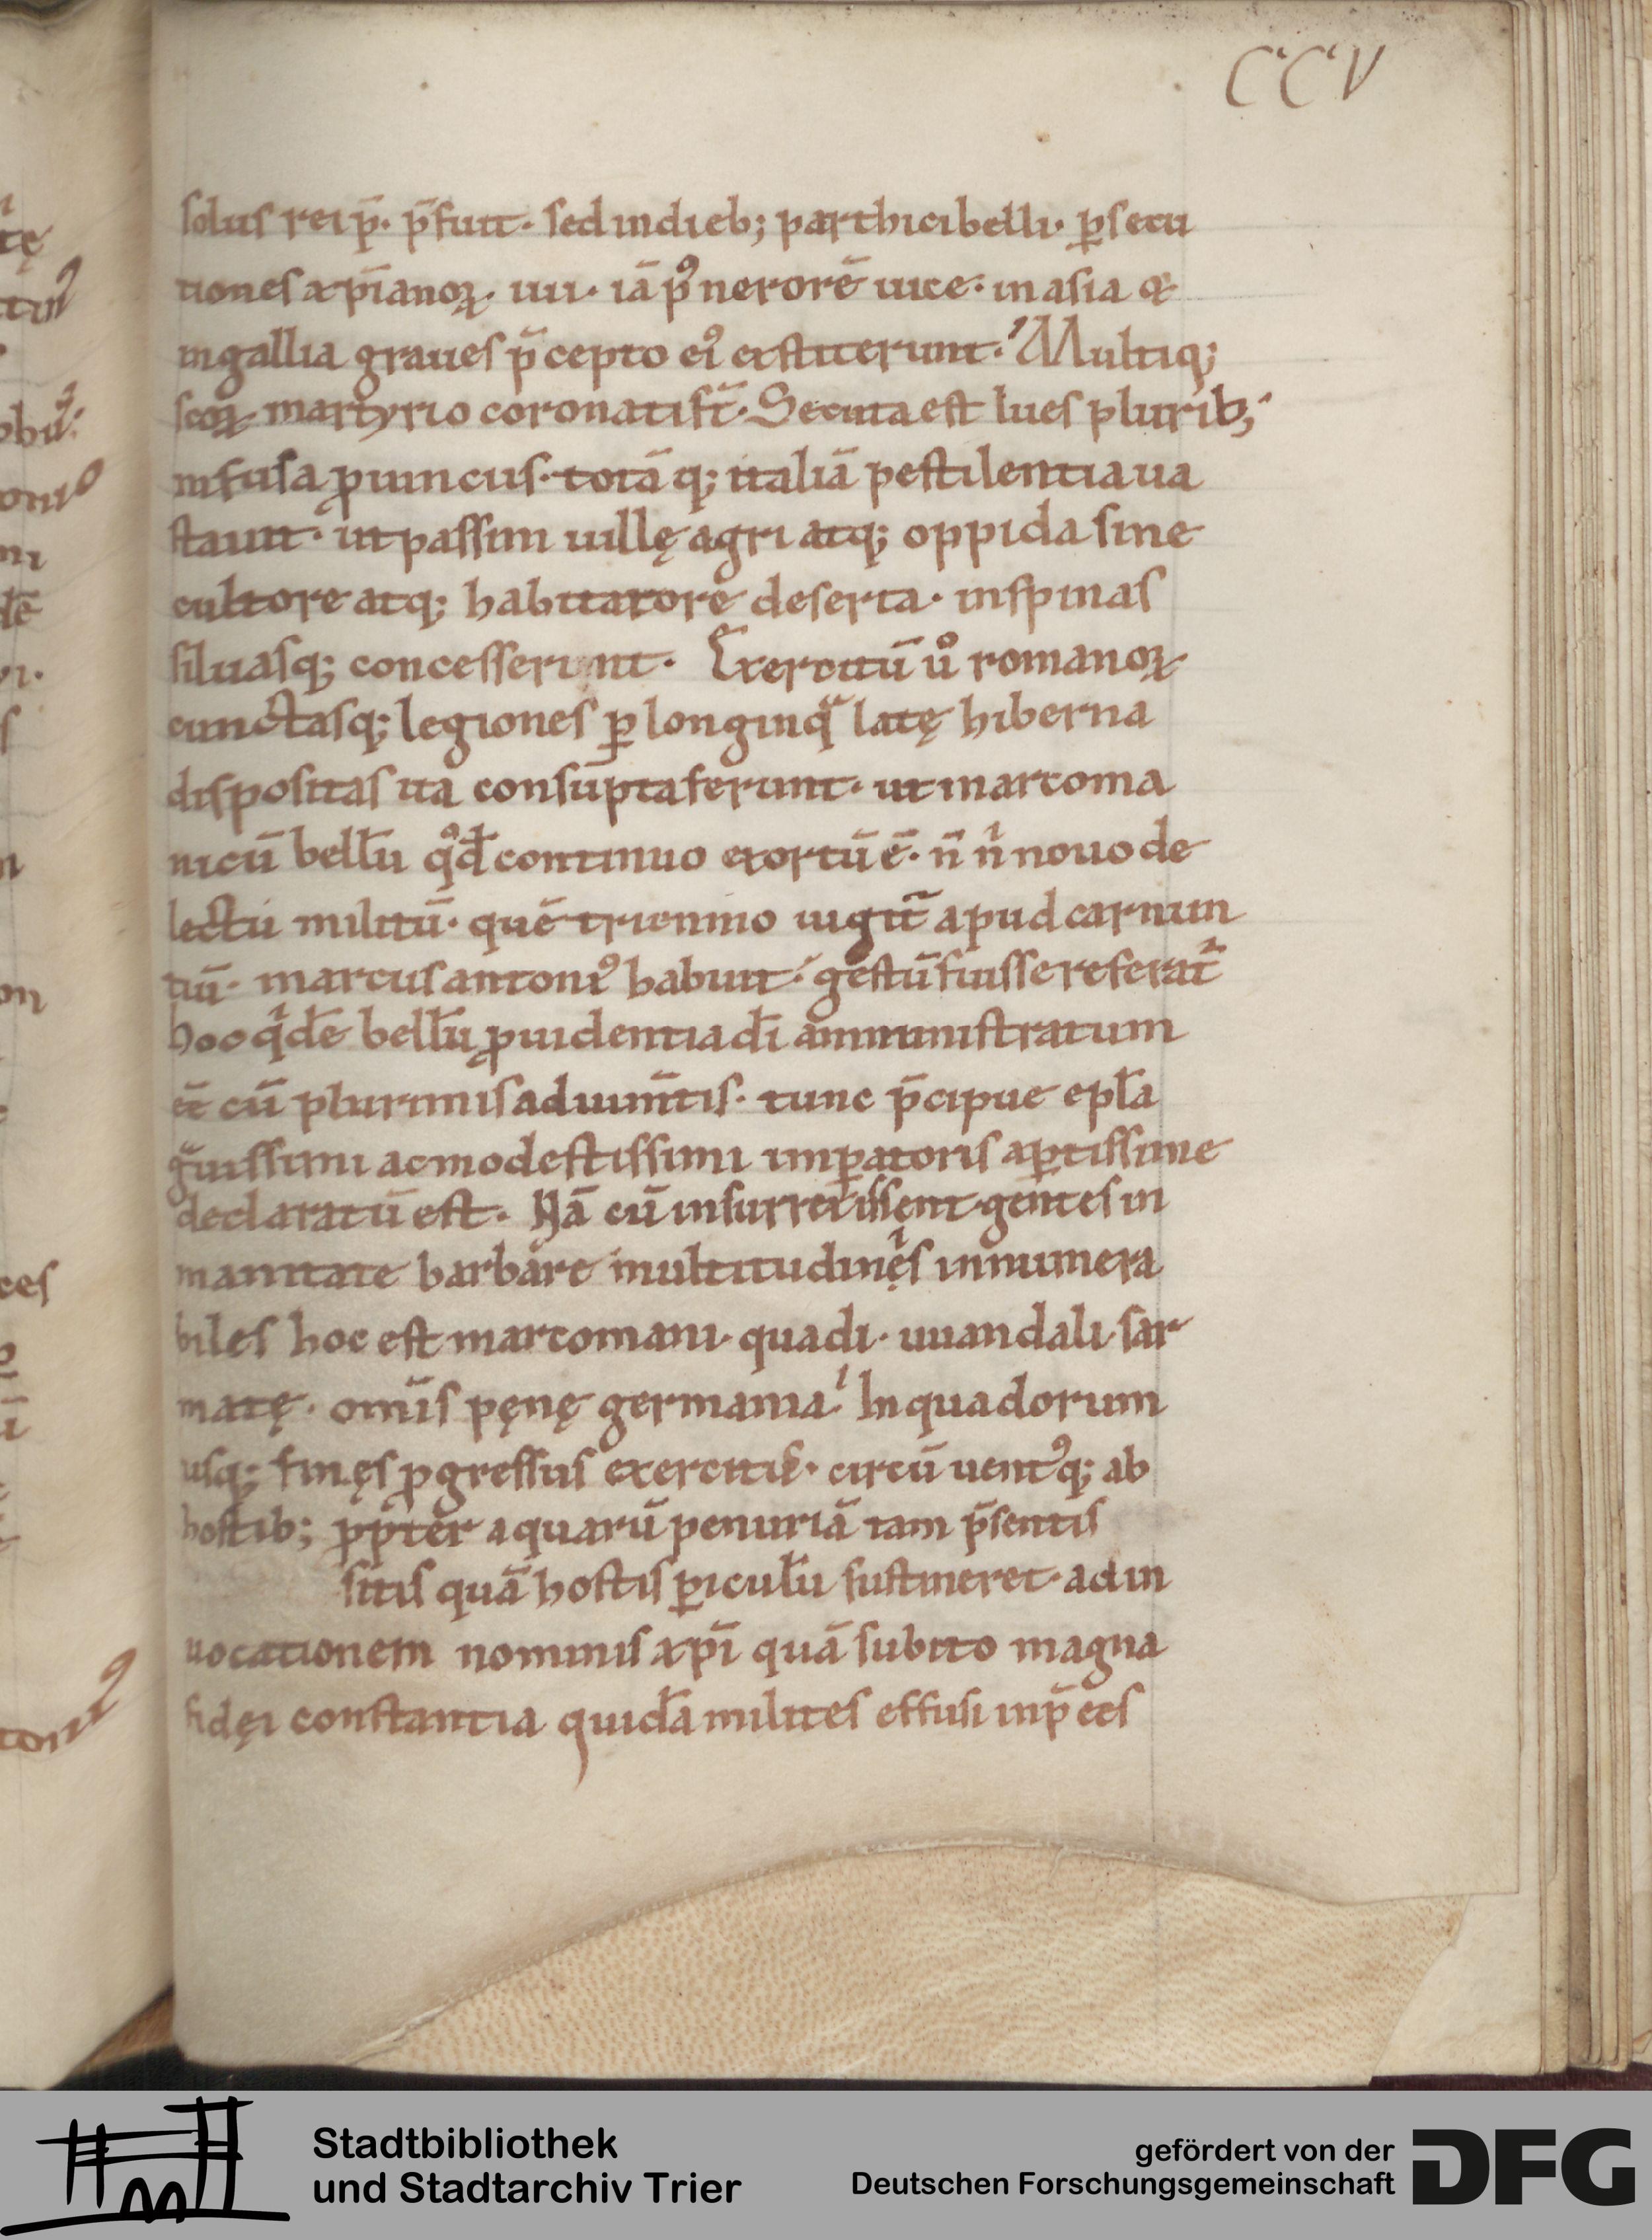 CCV
solus rei p̄. p̄fuit. sed in dieb; parthici belli. ꝑsecu
tiones xp̄ianoꝝ. iiii. iā pꝰ neronē uice. in asia &
in gallia graues p̄cepto eiꝰ extiterunt. Multiq;
scōꝝ martyrio coronati sūt. Secuta est lues plurib;
infusa ꝓuinciis. totā q; italiā pestilentia ua
stauit. ut passim uillę agri atq; oppida sine
cultore atq; habitatore deserta. in spinas
siluasq; concesserunt. Exercitū uͦ romanoꝝ
cunctasq; legiones ꝑ longinqͣ latę hiberna
dispositas ita consūpta ferunt. ut marcoma
nicū bellū qͦd continuo exortū ē. n̄ nͥ nouo de
lectu militū. quē triennio iugit̄ apud carnun
tiū. marcus antoniꝰ habuit. gestū fuisse referat̄
hoc qͥdē bellū ꝓuidentia dī amministratum
eē cū plurimis adium̄tis. tunc p̄cipue epl̄a
gͣuissimi ac modestissimi imꝑatoris aꝑtissime
declaratū est. Nā cū insurrexissent gentes in
manitate barbare multitudinęs innumera
biles hoc est marcomani. quadi. uuandali. sar
matę. om̄is pęnę germania. In quadorum
usq; finęs ꝓgressus exercitus. circū uentꝰq; ab
hostib; ꝓpter aquarū penuriā tam p̄sentis
sitis quā hostis ꝑiculū sustineret. ad in
uocationem nominis xp̄i quā subito magna
fidęi constantia quidā milites effusi in p̄ces
Stadtbibliothek
und Stadtarchiv Trier
gefördert von der
Deutschen Forschungsgemeinschaft
DFG